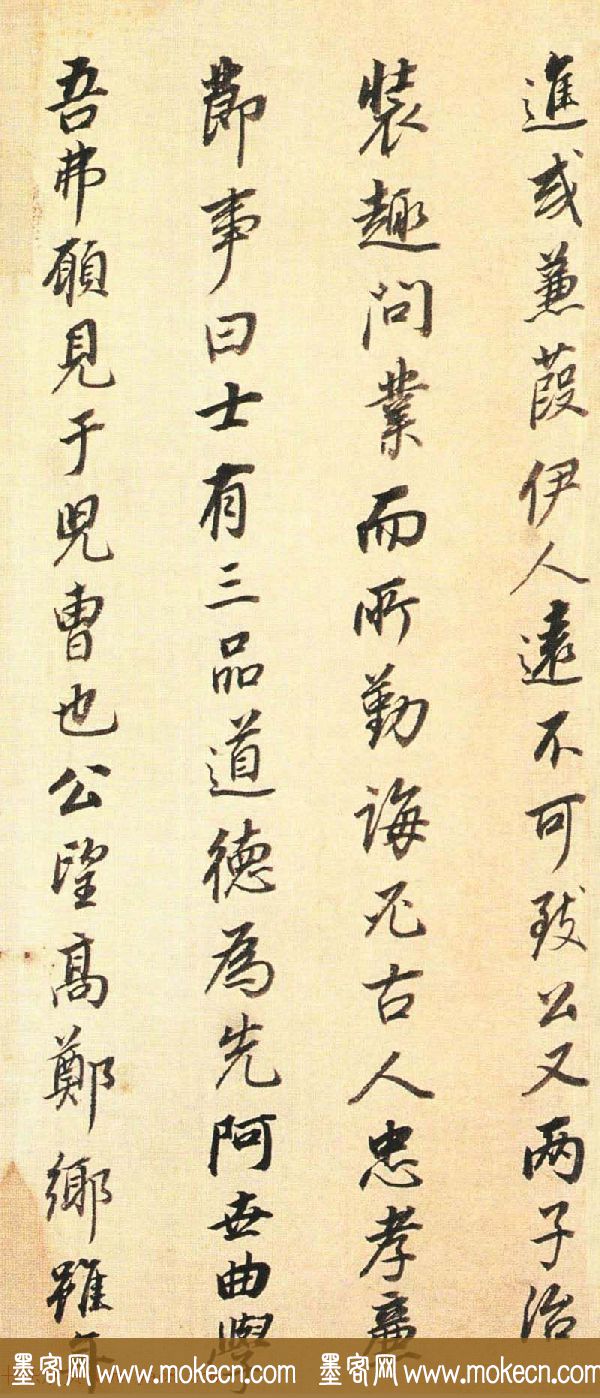 進或蒹葭伊人遠不可致公又兩子治
裝趣問業而所勤誨凡古人忠孝廉
節事曰士有三品道德為先阿世曲學
吾弗願見于兒曹也公望高鄭鄉雖年
墨客网 www.mokecn.com 墨客网 www.mokecn.com